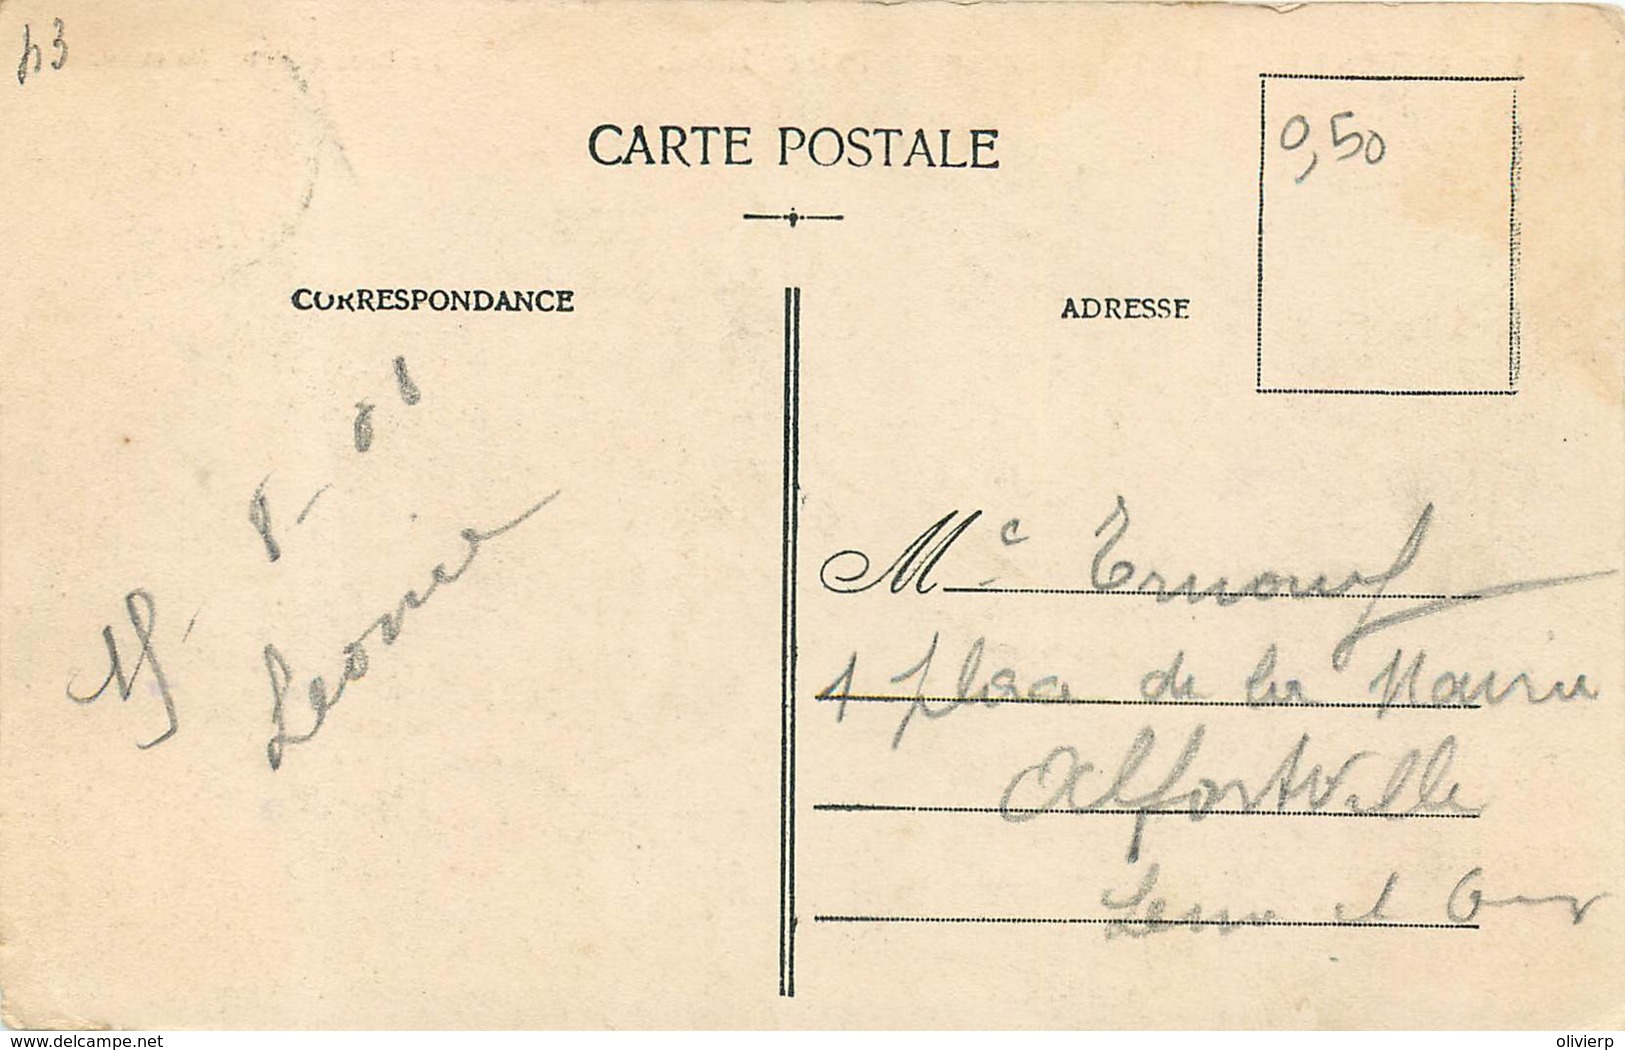 43
CARTE POSTALE
0,50
CORRESPONDANCE
ADRESSE
15-8-08
Leonie
Me Ernouf
1 place de la Mairie
Alfortville
Seine et Oise
www.delcampe.net
olivierp